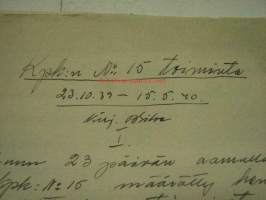 Kpk:n No 15 toiminta
23.10.39 – 15.5.40.
Kirj.
I.
23 päivän aamulla
Kpk: No 15 määrätty